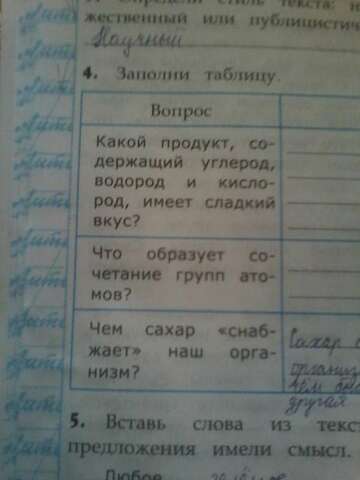 Определи стиль текста:
жественный или публицистич
Научный
4. Заполни таблицу.
Вопрос
Какой продукт, со-
держащий углерод,
водород и кисло-
род, имеет сладкий
вкус?
Что образует со-
четание групп ато-
мов?
Чем сахар «снаб-
жает» наш орга-
низм?
Сахар
организ
чем
другая
5. Вставь слова из текс
предложения имели смысл.
Любое